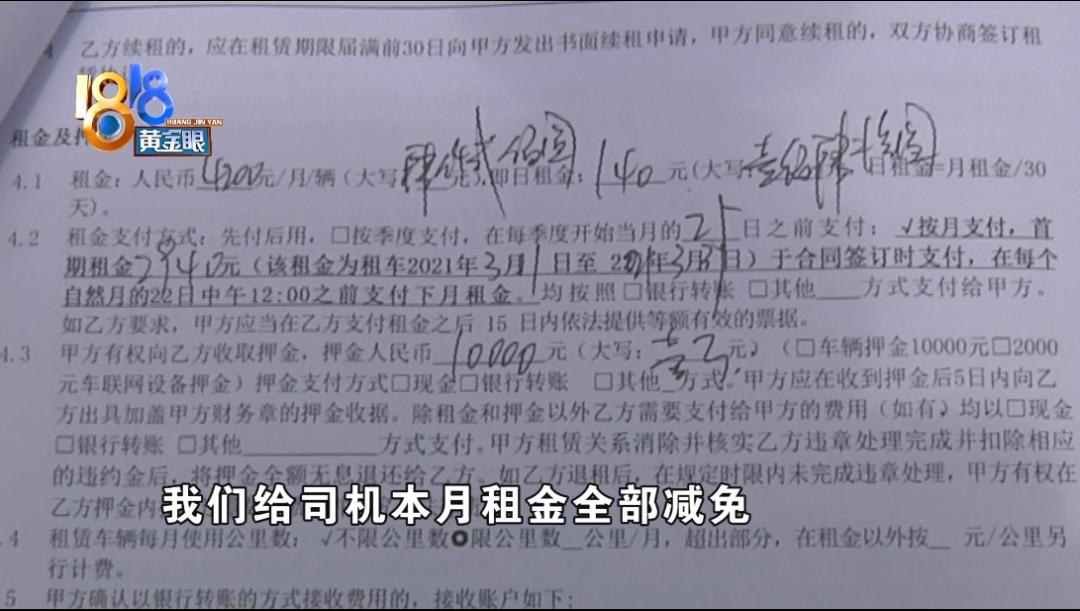 4 乙方续租的，应在租赁期限届满前30日向甲方发出书面续租申请，甲方同意续租的，双方协商签订租
1818
HUANG JIN YAN
黄金眼
租金及押
4.1 租金：人民币4200元/月/辆（大写肆仟贰佰圆元），即日租金：140元（大写：壹佰肆十圆 日租金=月租金/30
天）。
4.2 租金支付方式：先付后用，□按季度支付，在每季度开始当月的21日之前支付：√按月支付，首
期租金2940元（该租金为租车2021年3月11日至2021年3月31日）于合同签订时支付，在每个
自然月的22日中午12:00之前支付下月租金。均按照□银行转账 □其他___方式支付给甲方。
如乙方要求，甲方应当在乙方支付租金之后 15 日内依法提供等额有效的票据。
4.3 甲方有权向乙方收取押金，押金人民币10000元（大写：壹万元）（□车辆押金10000元□2000
元车联网设备押金）押金支付方式□现金□银行转账 □其他_方式。甲方应在收到押金后5日内向乙
方出具加盖甲方财务章的押金收据。除租金和押金以外乙方需要支付给甲方的费用（如有）均以□现金
□银行转账 □其他________方式支付。甲方租赁关系消除并核实乙方违章处理完成并扣除相应
的违约金后，将押金全额无息退还给乙方。如乙方退租后，在规定时限内未完成违章处理，甲方有权在
乙方押金内
我们给司机本月租金全部减免
.4 租赁车辆每月使用公里数：√不限公里数 限公里数_公里/月，超出部分，在租金以外按_ 元/公里另
行计费。
5 甲方确认以银行转账的方式接收费用的，接收账户如下：